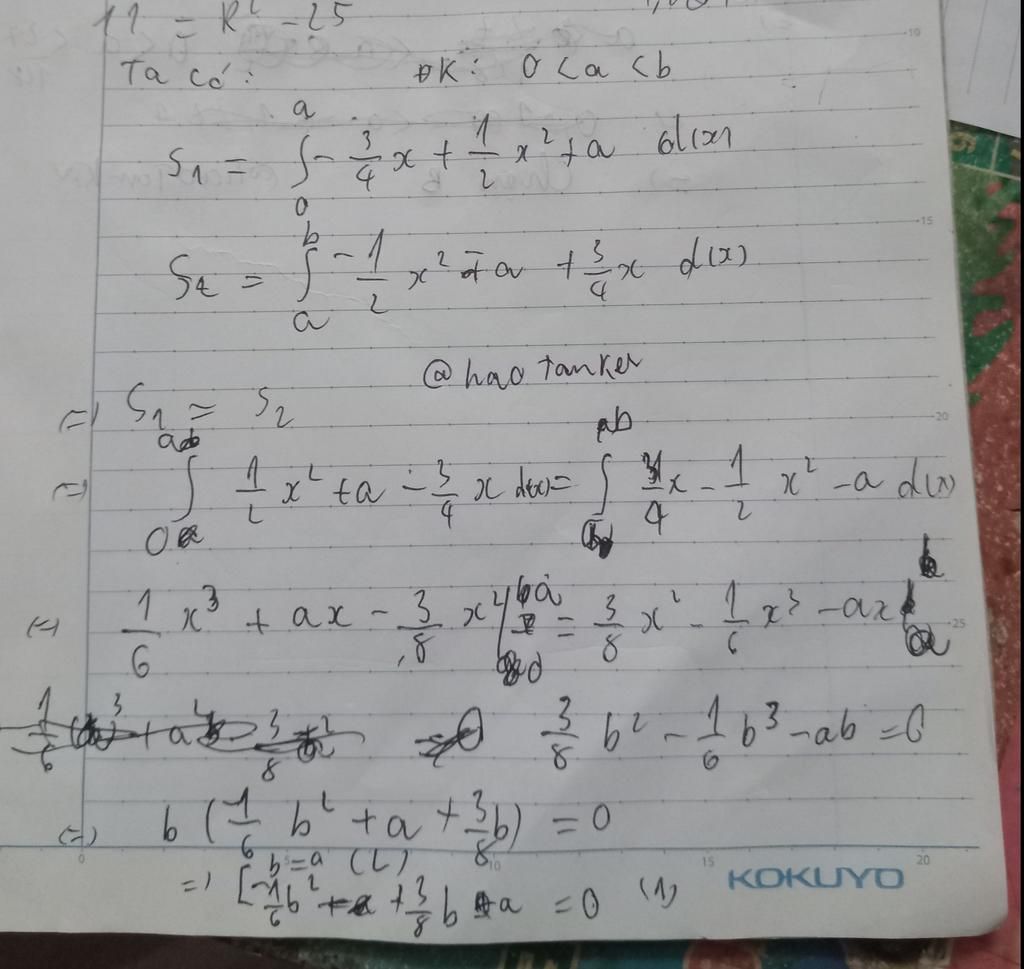 11 = R² - 25
Ta có: ĐK: 0 < a < b
S₁ = ∫₀ᵃ - 3/4 x + 1/2 x² + a d(x)
S₂ = ∫ₐᵇ - 1/2 x² - a + 3/4 x d(x)
@haotanker
=) S₁ = S₂
=) ∫ 1/2 x² + a - 3/4 x d(x) = ∫ 3/4 x - 1/2 x² - a d(x)
(=) 1/6 x³ + ax - 3/8 x² | = 3/8 x² - 1/6 x³ - ax |
3/8 b² - 1/6 b³ - ab = 0
(=) b (-1/6 b² + a + 3/8 b) = 0
b = a (L)
=) [ -1/6 b² + 3/8 b - a = 0 (1)
10
15
20
25
0
5
10
15
20
KOKUYO